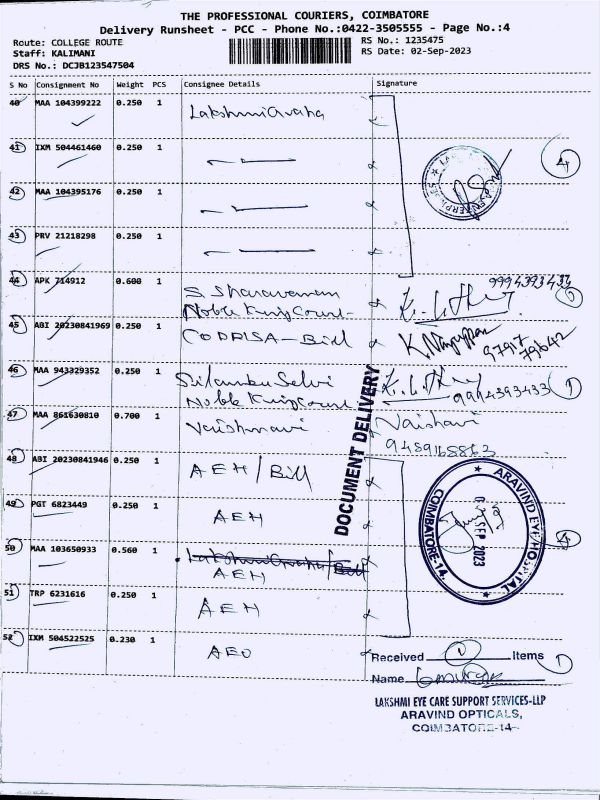 THE PROFESSIONAL COURIERS, COIMBATORE
Delivery Runsheet - PCC - Phone No.:0422-3505555 - Page No.:4
Route: COLLEGE ROUTE
RS No.: 1235475
Staff: KALIMANI
RS Date: 02-Sep-2023
DRS No.: DCJB123547504
S No Consignment No Weight PCS Consignee Details Signature
40 MAA 104399222 0.250 1 Lakshmi Graha
41 IXM 504461460 0.250 1
42 MAA 104395176 0.250 1
43 PRV 21218298 0.250 1
4
44 APK 714912 0.600 1 S. Sharavanan
Noble King Court
9994393433
45 ABI 20230841969 0.250 1 CODRISA - Bill
97917
79642
46 MAA 943329352 0.250 1 Selvi
Noble King Court
9994393433 1
47 MAA 861630810 0.700 1 Vaishnavi Vaishavi
9489168863
DOCUMENT DELIVERY
48 ABI 20230841946 0.250 1 AEH / Bill
49 PGT 6823449 0.250 1 AEH
50 MAA 103650933 0.560 1 Lakshmi Graha / Bill
AEH
51 TRP 6231616 0.250 1 AEH
ARAVIND EYE HOSPITAL
COIMBATORE-14.
SEP 2023
52 IXM 504522525 0.230 1 AEO
Received 1 Items 1
Name
LAKSHMI EYE CARE SUPPORT SERVICES-LLP
ARAVIND OPTICALS,
COIMBATORE-14